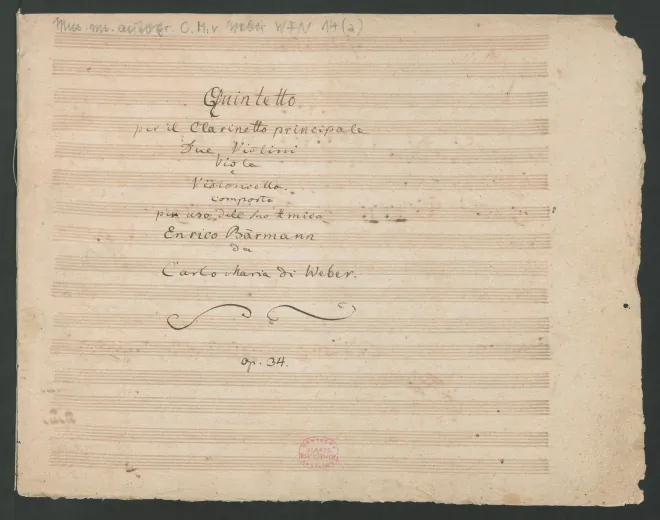 Mus. ms. autogr. C. M. v. Weber WFN 14 (a)
Quintetto
per il Clarinetto principale
Due Violini
Viola
e
Violoncello.
composto
per uso dell suo Amico
Enrico Bärmann
da
Carlo Maria di Weber.
op. 34.